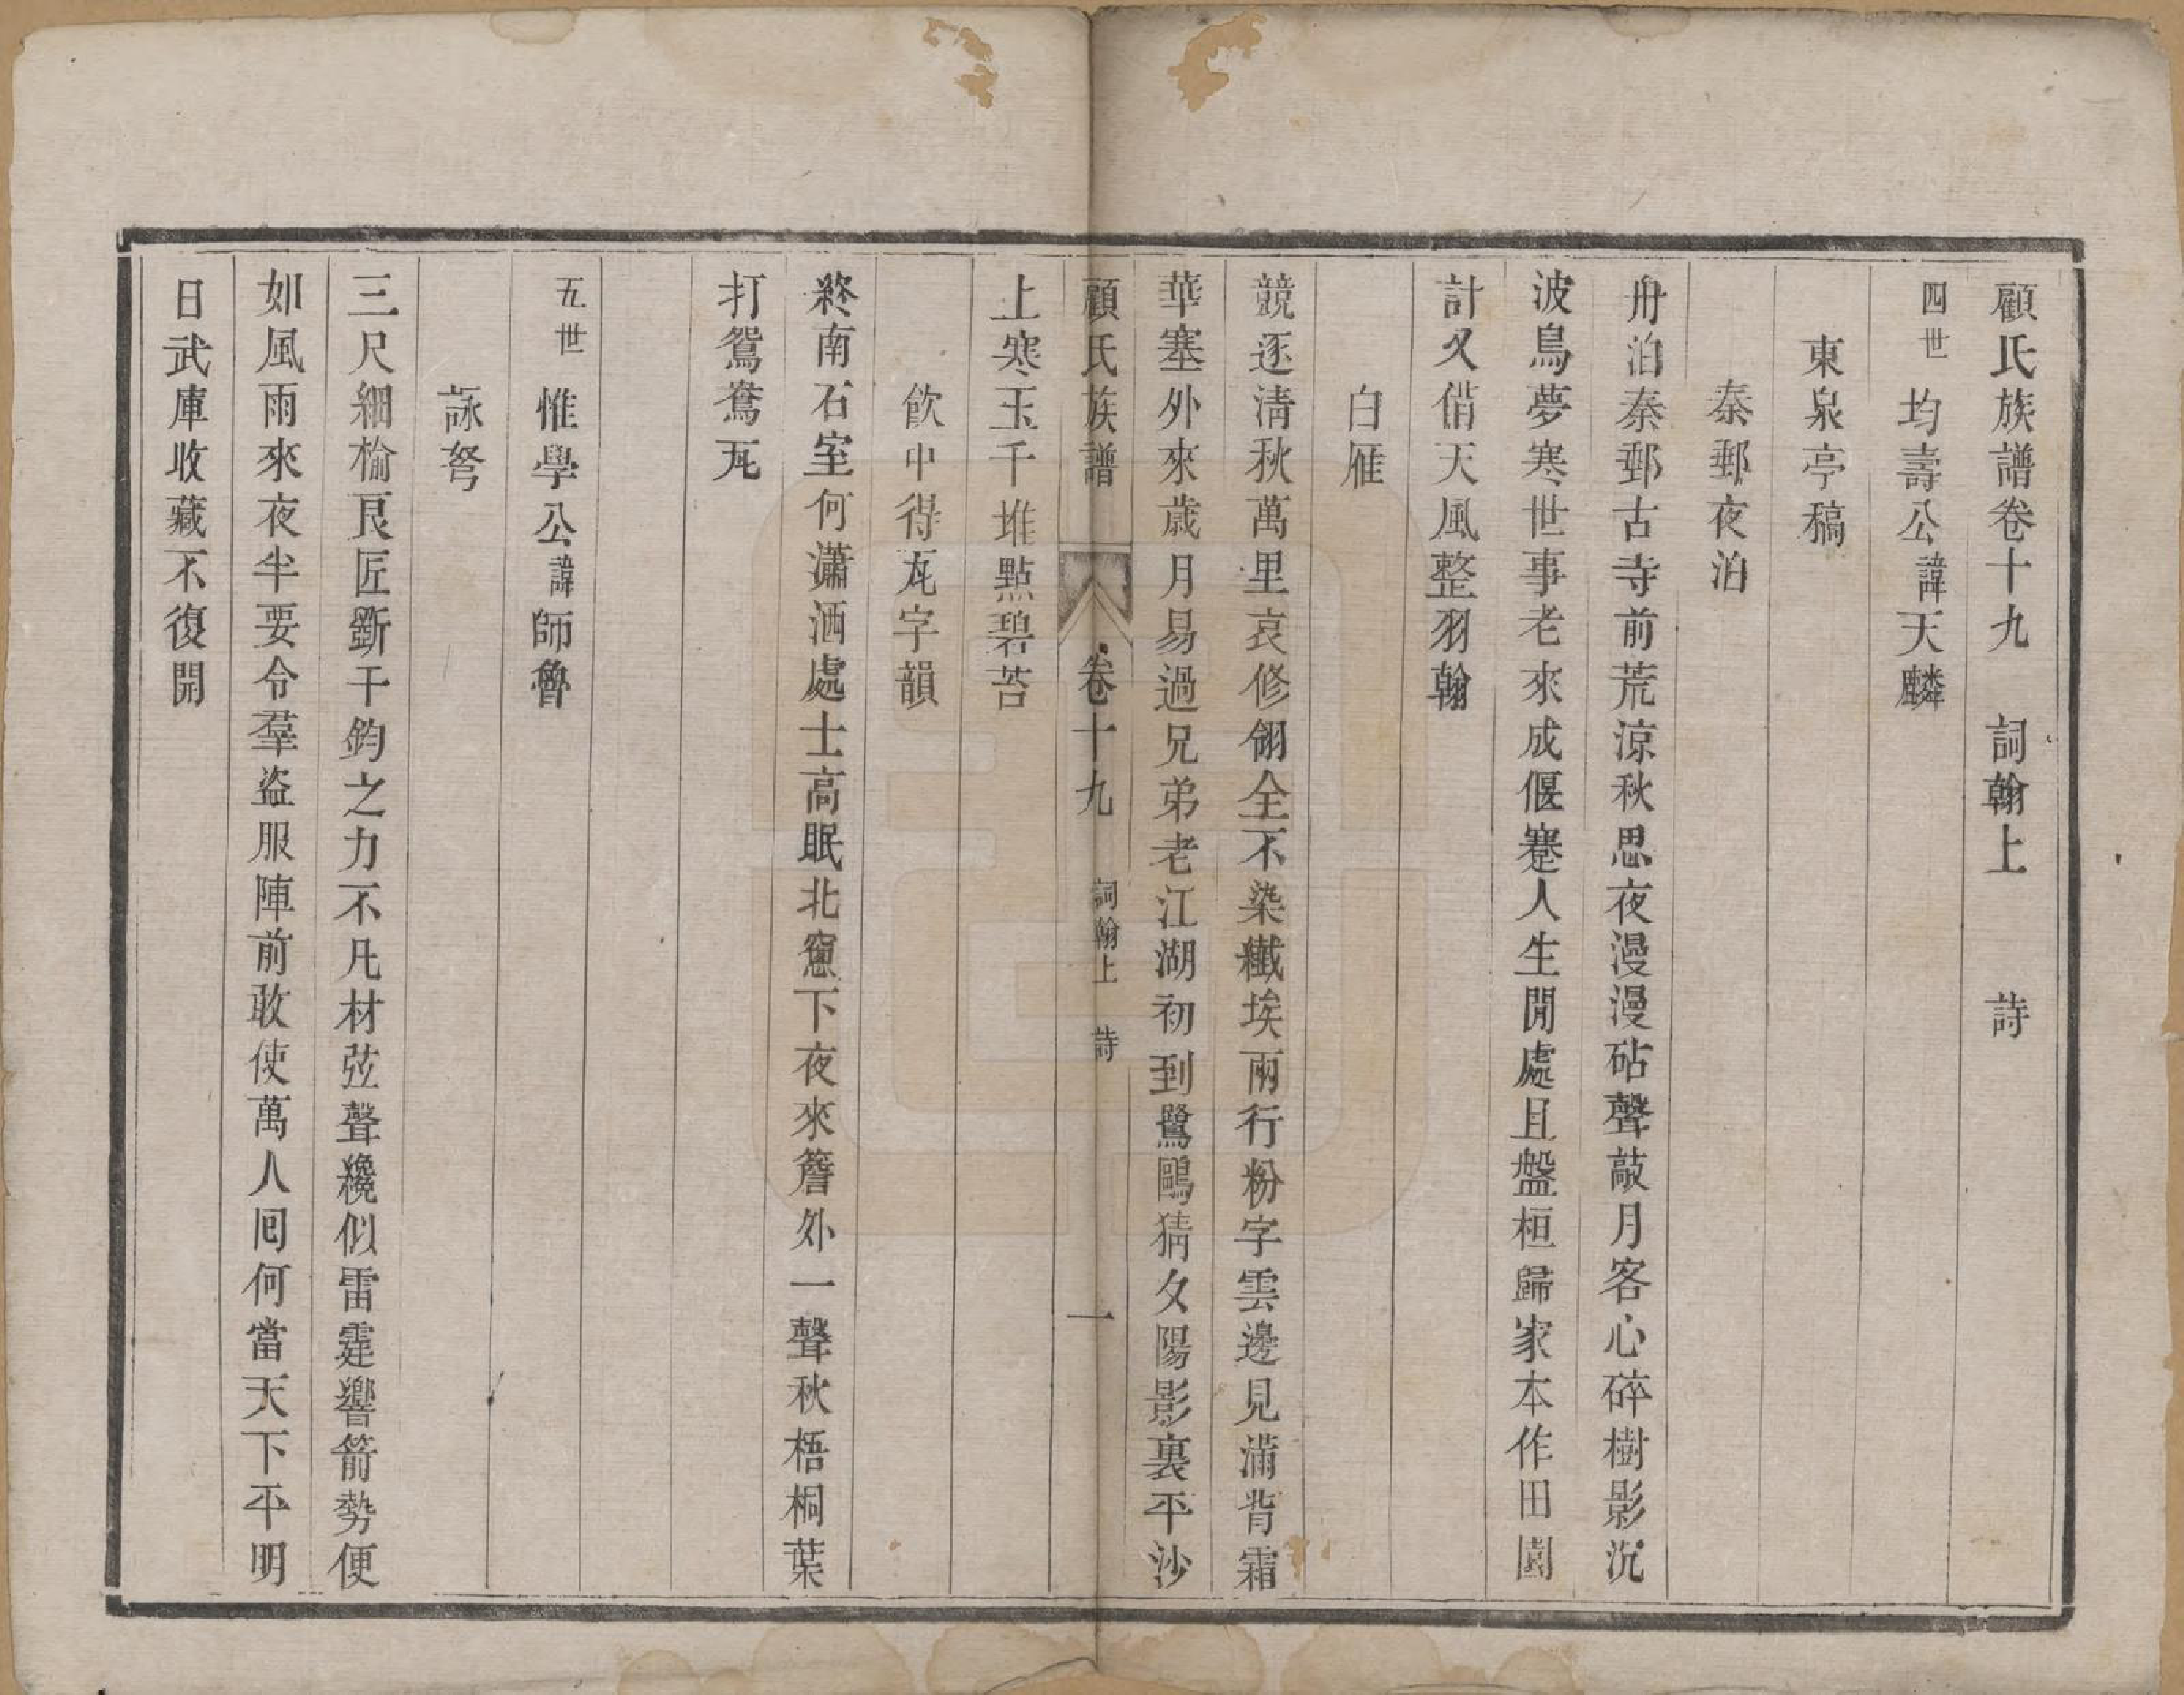 顧氏族譜卷十九　詞翰上　詩
四世　均壽公諱天麟
東泉亭稿
秦郵夜泊
舟泊秦郵古寺前荒涼秋思夜漫漫砧聲敲月客心碎樹影沉
波鳥夢寒世事老來成偃蹇人生閒處且盤桓歸家本作田園
計又借天風整羽翰
白雁
競逐清秋萬里哀修翎全不染纖埃兩行粉字雲邊見滿背霜
華塞外來歲月易過兄弟老江湖初到鷺鷗猜夕陽影裏平沙
顧氏族譜　卷十九　詞翰上　詩　一
上寒玉千堆點碧苔
飲中得瓦字韻
終南石室何瀟洒處士高眠北窻下夜來簷外一聲秋梧桐葉
打鴛鴦瓦
五世　惟學公諱師魯
詠弩
三尺細榆良匠斲千鈞之力不凡材弦聲纔似雷霆響箭勢便
如風雨來夜半要令羣盜服陣前敢使萬人囘何當天下平明
日武庫收藏不復開